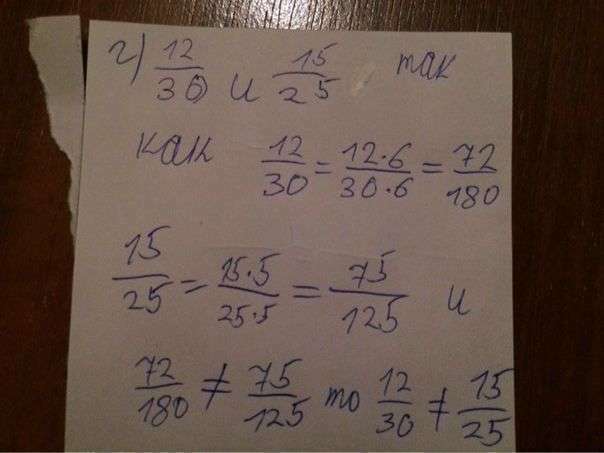 г) 12/30 и 15/25 так
как 12/30 = 12·6/30·6 = 72/180
15/25 = 15·5/25·5 = 75/125 и
72/180 ≠ 75/125 то 12/30 ≠ 15/25